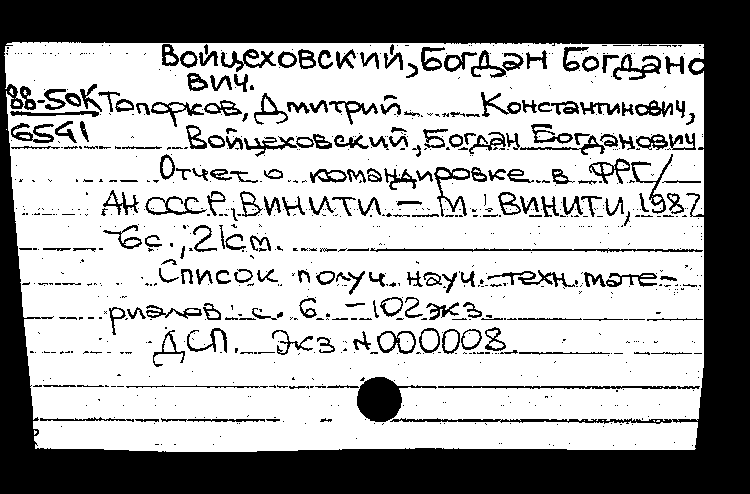 Войцеховский, Богдан Богдано
вич.
88-5ОК Топорков, Дмитрий Константинович,
6541 Войцеховский, Богдан Богданович
Отчет о командировке в ФРГ/
АН СССР, ВИНИТИ. – М.: ВИНИТИ, 1987
6с.; 21см.
Список получ. науч.-техн. мате-
риалов: с. 6. – 102 экз.
ДСП. Экз. N000008.